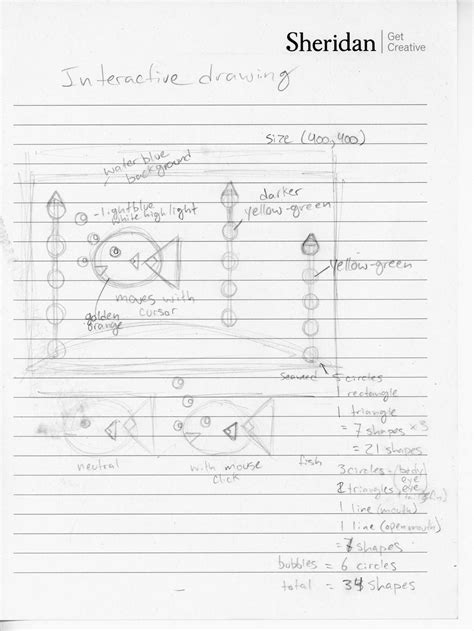 Sheridan | Get Creative
Interactive drawing
size (400,400)
water blue background
-lightblue white highlight
darker yellow-green
yellow-green
golden orange
moves with cursor
seaweed 5 circles
1 rectangle
1 triangle
= 7 shapes x3
= 21 shapes
neutral
with mouse click
fish
3 circles - body eye eye
2 triangles
1 line (mouth)
1 line (open mouth)
= 7 shapes
bubbles = 6 circles
total = 34 shapes